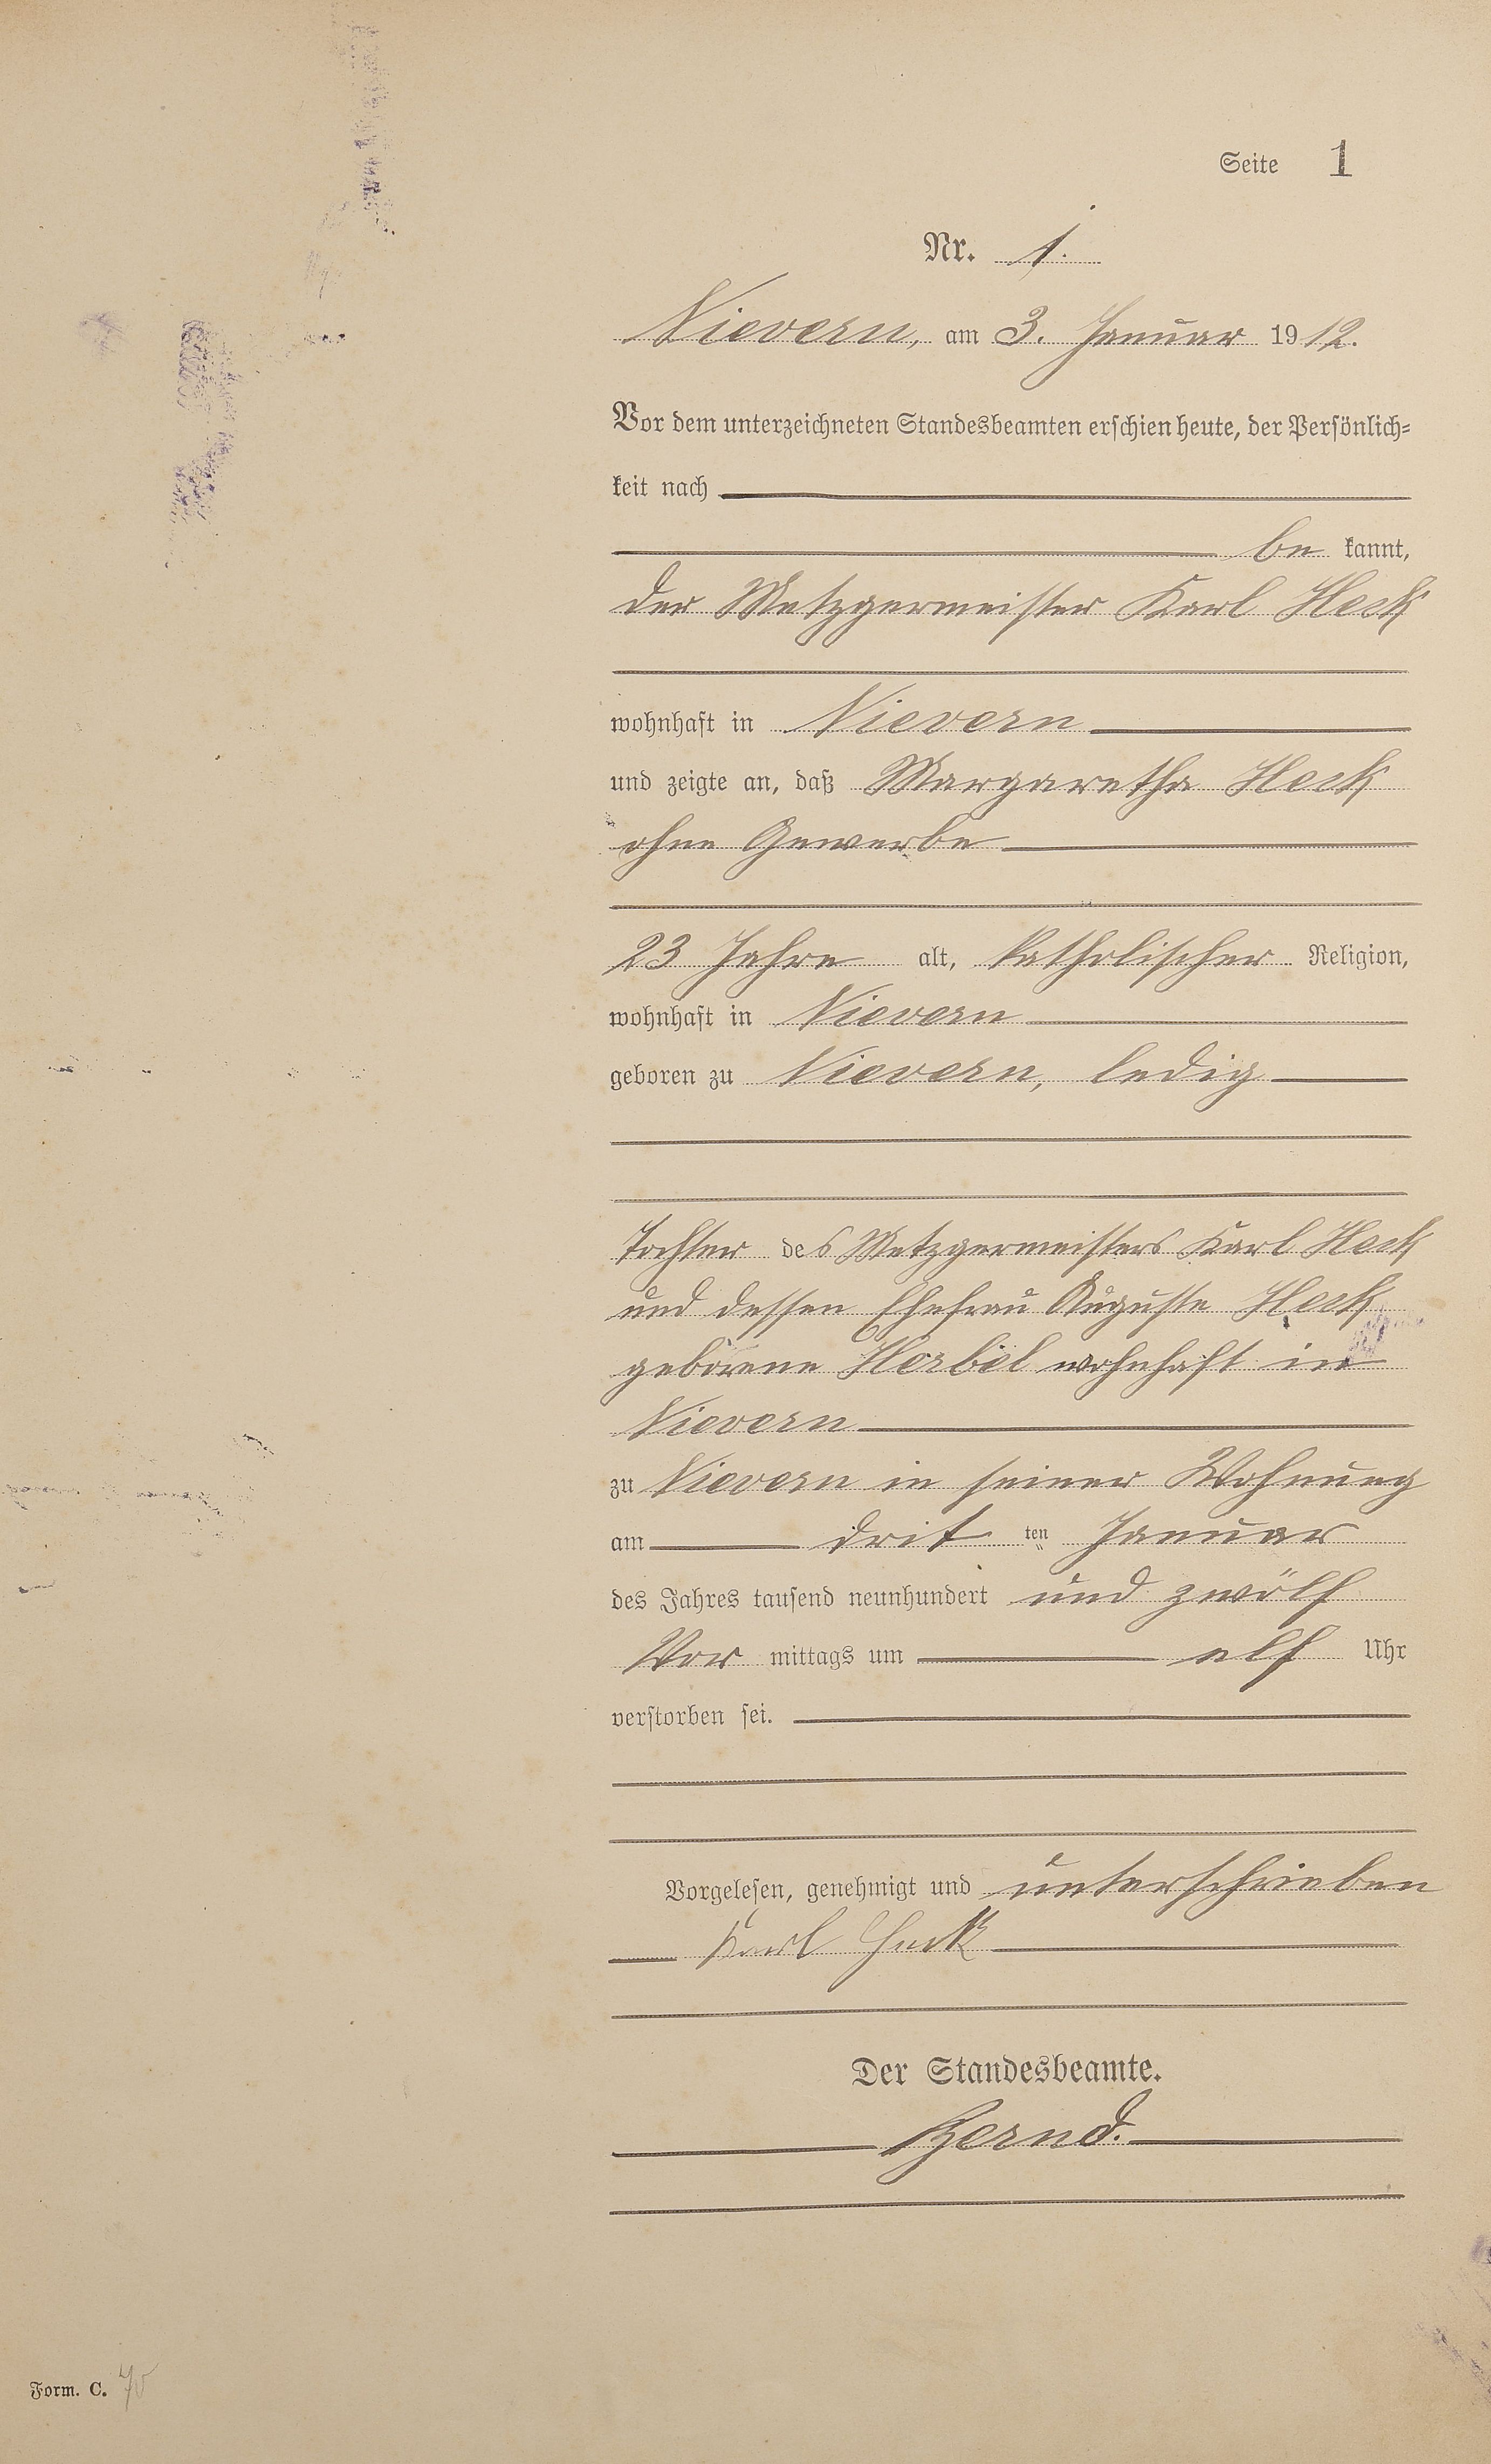 Seite 1
Nr. 1.
Nievern, am 3. Januar 1912.
Vor dem unterzeichneten Standesbeamten erschien heute, der Persönlich-
keit nach
be kannt,
der Metzgermeister Karl Heck
wohnhaft in Nievern
und zeigte an, daß Margaretha Heck
ohne Gewerbe
23 Jahre alt, katholischer Religion,
wohnhaft in Nievern
geboren zu Nievern, ledig
Tochter des Metzgermeisters Karl Heck
und dessen Ehefrau Auguste Heck
geborene Herbel wohnhaft in
Nievern
zu Nievern in seiner Wohnung
am drit ten Januar
des Jahres tausend neunhundert und zwölf
Vor mittags um elf Uhr
verstorben sei.
Vorgelesen, genehmigt und unterschrieben
Karl Heck
Der Standesbeamte.
Form. C.